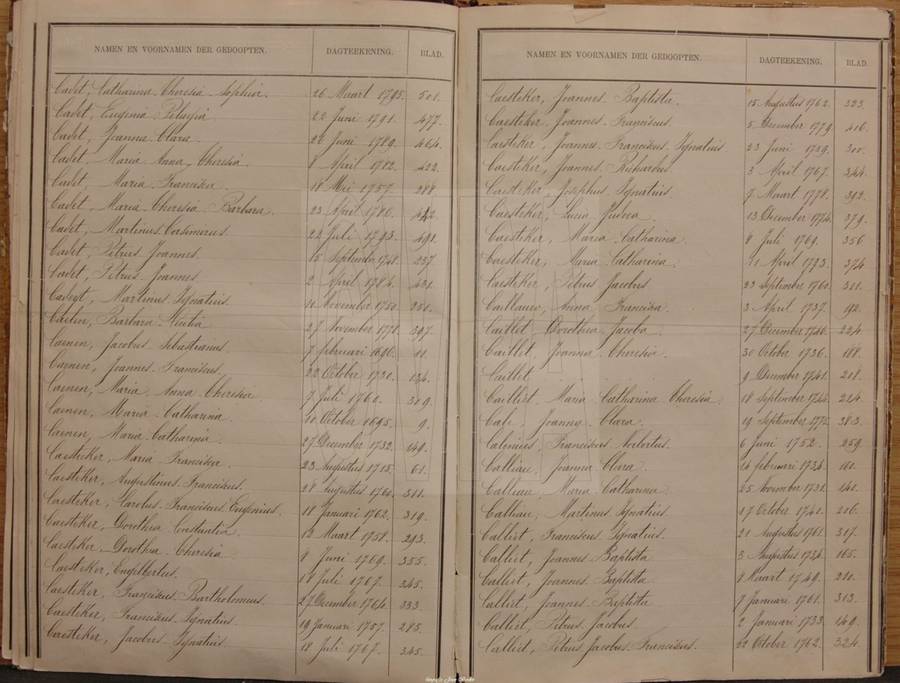 NAMEN EN VOORNAMEN DER GEDOOPTEN. DAGTEEKENING. BLAD.
Cadet, Catharina Theresia Sophia. 26 Maart 1795. 501.
Cadet, Eugenia Pelagia 22 Juni 1791. 477.
Cadet, Joanna Clara. 26 Juni 1789. 464.
Cadet, Maria Anna Theresia. 8 April 1782. 422.
Cadet, Maria Francisca. 18 Mei 1757. 288.
Cadet, Maria Theresia Barbara. 23 April 1786. 442.
Cadet, Martinus Casimirus. 22 Juli 1793. 491.
Cadet, Petrus Joannes. 15 September 1748. 237.
Cadet, Petrus Joannes 2 April 1784. 431.
Martinus Ignatius. 10 November 1750. 251.
Barbara 27 November 1778. 397.
Caenen, Jacobus Sebastianus. 7 februari 1696. 11.
Caenen, Joannes Franciscus. 22 October 1730. 134.
Caenen, Maria Anna Theresia 7 Juli 1760. 309.
Caenen, Maria Catharina. 10 October 1695. 9.
Caenen, Maria Catharina. 27 December 1732. 149.
Caesteker, Maria Francisca. 23 Augustus 1715. 61.
Caesteker, Augustinus Franciscus. 28 Augustus 1760. 311.
Caesteker, Carolus Franciscus Eugenius. 18 Januari 1762. 319.
Caesteker, Dorothea Constantia. 13 Maart 1758. 293.
Caesteker, Dorothea Theresia 9 Juni 1769. 355.
Caesteker, Engelbertus. 18 Juli 1767. 345.
Caesteker, Franciscus Bartholomeus. 27 December 1764. 333.
Caesteker, Franciscus Ignatius. 19 Januari 1757. 285.
Caesteker, Jacobus Ignatius. 18 Juli 1767. 345.
NAMEN EN VOORNAMEN DER GEDOOPTEN. DAGTEEKENING. BLAD.
Caesteker, Joannes Baptista. 15 Augustus 1762. 323.
Caesteker, Joannes Franciscus. 5 December 1779. 416.
Caesteker, Joannes Franciscus Ignatius 23 Juni 1759. 300.
Caesteker, Joannes Richardus. 3 April 1767. 344.
Caesteker, Josephus Ignatius. 9 Maart 1778. 392.
Caesteker, Lucia Judoca. 13 December 1774. 379.
Caesteker, Maria Catharina. 8 Juli 1769. 356.
Caesteker, Maria Catharina. April 1773. 374.
Caesteker, Petrus Jacobus 23 September 1760. 311.
Anna Francisca. 3 April 1737. 192.
Caillet, Dorothea Jacoba. 27 December 1746. 224.
Caillet, Joanna Theresia. 30 October 1736. 188.
Caillet 9 December 1741. 208.
Maria Catharina Theresia. 18 September 1744. 224.
Joanna Clara. 19 September 1775. 383.
Franciscus Norbertus. 6 Juni 1752. 259.
Calliau, Joanna Clara. 14 februari 1734. 161.
Calliau, Maria Catharina. 25 November 1731. 141.
Calliau, Martinus Ignatius. 17 October 1741. 206.
Calliet, Franciscus Ignatius. 21 Augustus 1761. 317.
Calliet, Joannes Baptista 3 Augustus 1734. 165.
Calliet, Joannes Baptista 8 Maart 1749. 210.
Calliet, Joannes Baptista 7 Januari 1761. 313.
Calliet, Petrus Jacobus. 2 Januari 1733. 149.
Calliet, Petrus Jacobus Franciscus. 22 October 1762. 324.